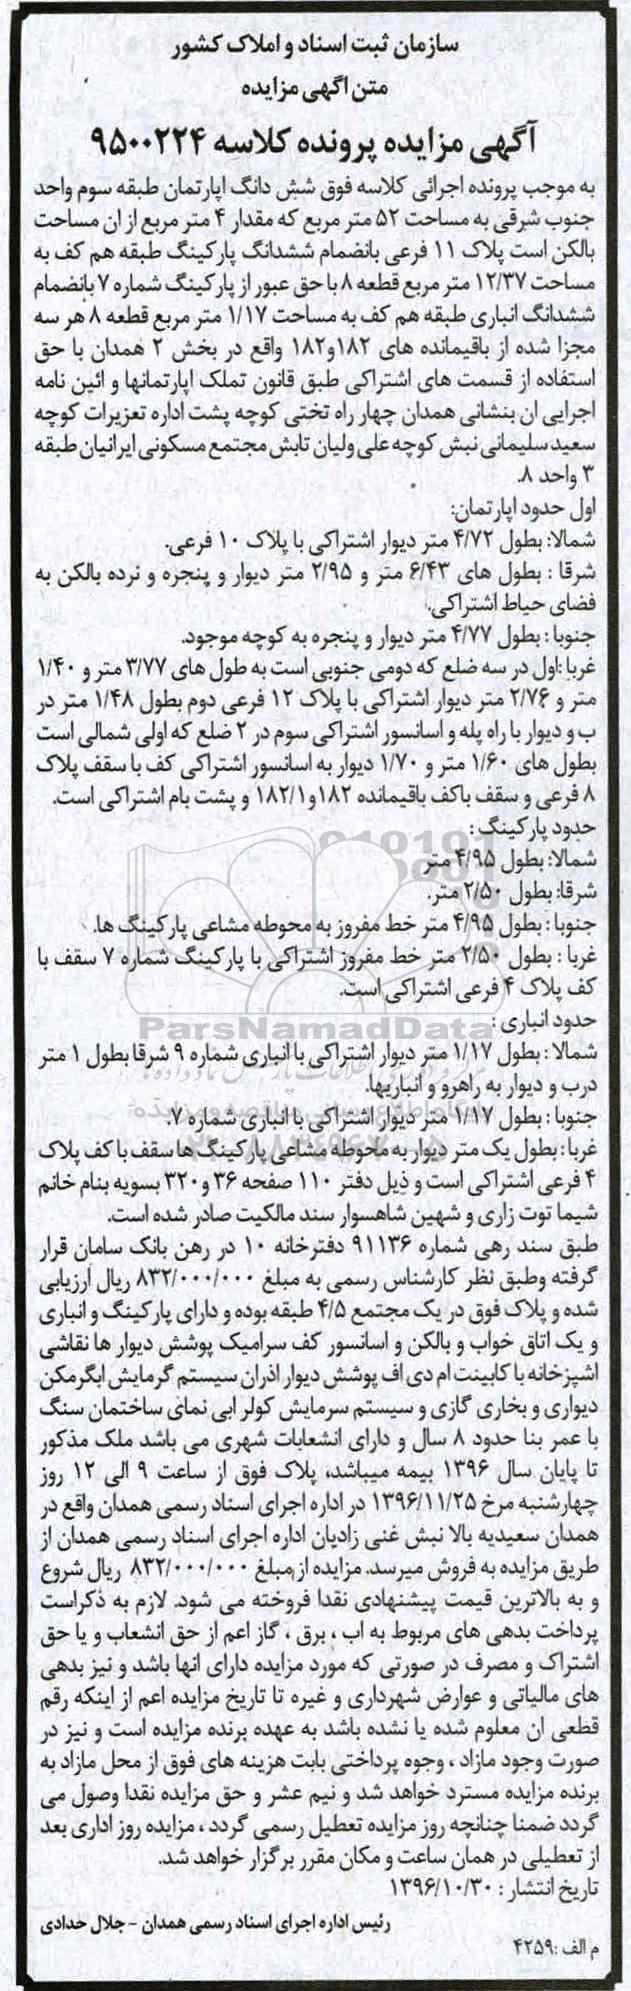 سازمان ثبت اسناد و املاک کشور
متن اگهی مزایده
آگهی مزایده پرونده کلاسه ۹۵۰۰۲۲۴
به موجب پرونده اجرائی کلاسه فوق شش دانگ اپارتمان طبقه سوم واحد
جنوب شرقی به مساحت ۵۲ متر مربع که مقدار ۴ متر مربع از ان مساحت
بالکن است پلاک ۱۱ فرعی بانضمام ششدانگ پارکینگ طبقه هم کف به
مساحت ۱۲/۳۷ متر مربع قطعه ۸ با حق عبور از پارکینگ شماره ۷ بانضمام
ششدانگ انباری طبقه هم کف به مساحت ۱/۱۷ متر مربع قطعه ۸ هر سه
مجزا شده از باقیمانده های ۱۸۲و۱۸۲ واقع در بخش ۲ همدان با حق
استفاده از قسمت های اشتراکی طبق قانون تملک اپارتمانها و ائین نامه
اجرایی ان بنشانی همدان چهار راه تختی کوچه پشت اداره تعزیرات کوچه
سعید سلیمانی نبش کوچه علی ولیان تابش مجتمع مسکونی ایرانیان طبقه
۳ واحد ۸.
اول حدود اپارتمان:
شمالا: بطول ۴/۷۲ متر دیوار اشتراکی با پلاک ۱۰ فرعی.
شرقا : بطول های ۶/۴۳ متر و ۲/۹۵ متر دیوار و پنجره و نرده بالکن به
فضای حیاط اشتراکی.
جنوبا : بطول ۴/۷۷ متر دیوار و پنجره به کوچه موجود.
غربا :اول در سه ضلع که دومی جنوبی است به طول های ۳/۷۷ متر و ۱/۴۰
متر و ۲/۷۶ متر دیوار اشتراکی با پلاک ۱۲ فرعی دوم بطول ۱/۴۸ متر در
ب و دیوار با راه پله و اسانسور اشتراکی سوم در ۲ ضلع که اولی شمالی است
بطول های ۱/۶۰ متر و ۱/۷۰ دیوار به اسانسور اشتراکی کف با سقف پلاک
۸ فرعی و سقف باکف باقیمانده ۱۸۲و۱۸۲/۱ و پشت بام اشتراکی است.
حدود پارکینگ :
شمالا: بطول ۴/۹۵ متر
شرقا: بطول ۲/۵۰ متر.
جنوبا : بطول ۴/۹۵ متر خط مفروز به محوطه مشاعی پارکینگ ها.
غربا : بطول ۲/۵۰ متر خط مفروز اشتراکی با پارکینگ شماره ۷ سقف با
کف پلاک ۴ فرعی اشتراکی است.
حدود انباری :
ParsNamadData
شمالا : بطول ۱/۱۷ متر دیوار اشتراکی با انباری شماره ۹ شرقا بطول ۱ متر
درب و دیوار به راهرو و انباریها.
جنوبا : بطول ۱/۱۷ متر دیوار اشتراکی با انباری شماره ۷.
غربا : بطول یک متر دیوار به محوطه مشاعی پارکینگ ها سقف با کف پلاک
۴ فرعی اشتراکی است و ذیل دفتر ۱۱۰ صفحه ۳۶ و ۳۲۰ بسویه بنام خانم
شیما توت زاری و شهین شاهسوار سند مالکیت صادر شده است.
طبق سند رهی شماره ۹۱۱۳۶ دفترخانه ۱۰ در رهن بانک سامان قرار
گرفته وطبق نظر کارشناس رسمی به مبلغ ۸۳۲/۰۰۰/۰۰۰ ریال ارزیابی
شده و پلاک فوق در یک مجتمع ۴/۵ طبقه بوده و دارای پارکینگ و انباری
و یک اتاق خواب و بالکن و اسانسور کف سرامیک پوشش دیوار ها نقاشی
اشپزخانه با کابینت ام دی اف پوشش دیوار اذران سیستم گرمایش ابگرمکن
دیواری و بخاری گازی و سیستم سرمایش کولر ابی نمای ساختمان سنگ
با عمر بنا حدود ۸ سال و دارای انشعابات شهری می باشد ملک مذکور
تا پایان سال ۱۳۹۶ بیمه میباشد، پلاک فوق از ساعت ۹ الی ۱۲ روز
چهارشنبه مرخ ۱۳۹۶/۱۱/۲۵ در اداره اجرای اسناد رسمی همدان واقع در
همدان سعیدیه بالا نبش غنی زادیان اداره اجرای اسناد رسمی همدان از
طریق مزایده به فروش میرسد. مزایده از مبلغ ۸۳۲/۰۰۰/۰۰۰ ریال شروع
و به بالاترین قیمت پیشنهادی نقدا فروخته می شود. لازم به ذکراست
پرداخت بدهی های مربوط به اب ، برق ، گاز اعم از حق انشعاب و یا حق
اشتراک و مصرف در صورتی که مورد مزایده دارای انها باشد و نیز بدهی
های مالیاتی و عوارض شهرداری و غیره تا تاریخ مزایده اعم از اینکه رقم
قطعی ان معلوم شده یا نشده باشد به عهده برنده مزایده است و نیز در
صورت وجود مازاد ، وجوه پرداختی بابت هزینه های فوق از محل مازاد به
برنده مزایده مسترد خواهد شد و نیم عشر و حق مزایده نقدا وصول می
گردد ضمنا چنانچه روز مزایده تعطیل رسمی گردد ، مزایده روز اداری بعد
از تعطیلی در همان ساعت و مکان مقرر برگزار خواهد شد.
تاریخ انتشار : ۱۳۹۶/۱۰/۳۰
رئیس اداره اجرای اسناد رسمی همدان - جلال حدادی
م الف :۴۲۵۹